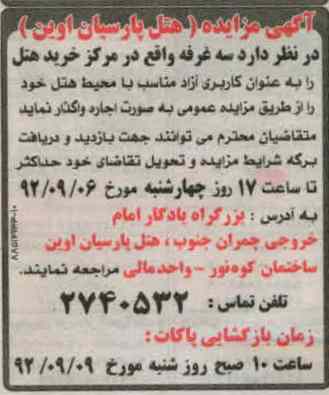 آگهی مزایده ( هتل پارسیان اوین )
در نظر دارد سه غرفه واقع در مرکز خرید هتل
را به عنوان کاربری آزاد متناسب با محیط هتل خود
را از طریق مزایده عمومی به صورت اجاره واگذار نماید
متقاضیان محترم می توانند جهت بازدید و دریافت
برگه شرایط مزایده و تحویل تقاضای خود حداکثر
تا ساعت ۱۷ روز چهارشنبه مورخ ۹۲/۰۹/۰۶
به آدرس : بزرگراه یادگار امام
خروجی چمران جنوب ، هتل پارسیان اوین
ساختمان کوه نور - واحد مالی مراجعه نمایند.
تلفن تماس : ۲۷۴۰۵۳۲
زمان بازگشایی پاکات :
ساعت ۱۰ صبح روز شنبه مورخ ۹۲/۰۹/۰۹